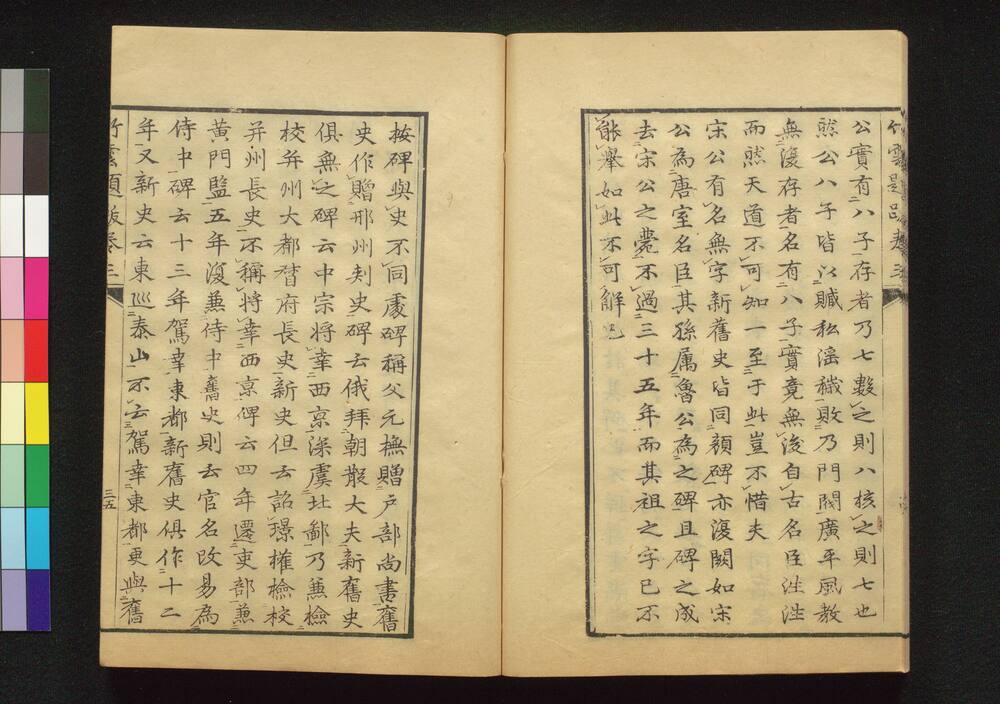 竹雲題跋卷三
公實有八子存者乃七數之則八核之則七也
然公八子皆以贓私滛穢敗乃門闕廣平風教
無復存者名有八子實竟無後自古名臣泩泩
而然天道不可知一至于此豈不惜夫
宋公有名無字新舊史皆同顏碑亦復闕如宋
公為唐室名臣其孫属魯公為之碑且碑之成
去宋公之薨不過三十五年而其祖之字已不
能舉如此不可解也
按碑與史不同處碑稱父元撫贈户部尚書舊
史作贈邢州刾史碑云俄拜朝散大夫新舊史
俱無之碑云中宗將幸西京深虞北鄙乃兼檢
校并州大都督府長史新史但云詔璟權檢校
并州長史不稱將幸西京碑云四年遷吏部兼
黄門監五年復兼侍中舊史則云官名改易為
侍中碑云十三年駕幸東都新舊史俱作十二
年又新史云東廵泰山不云駕幸東都更與舊
竹雲題跋卷三
三五